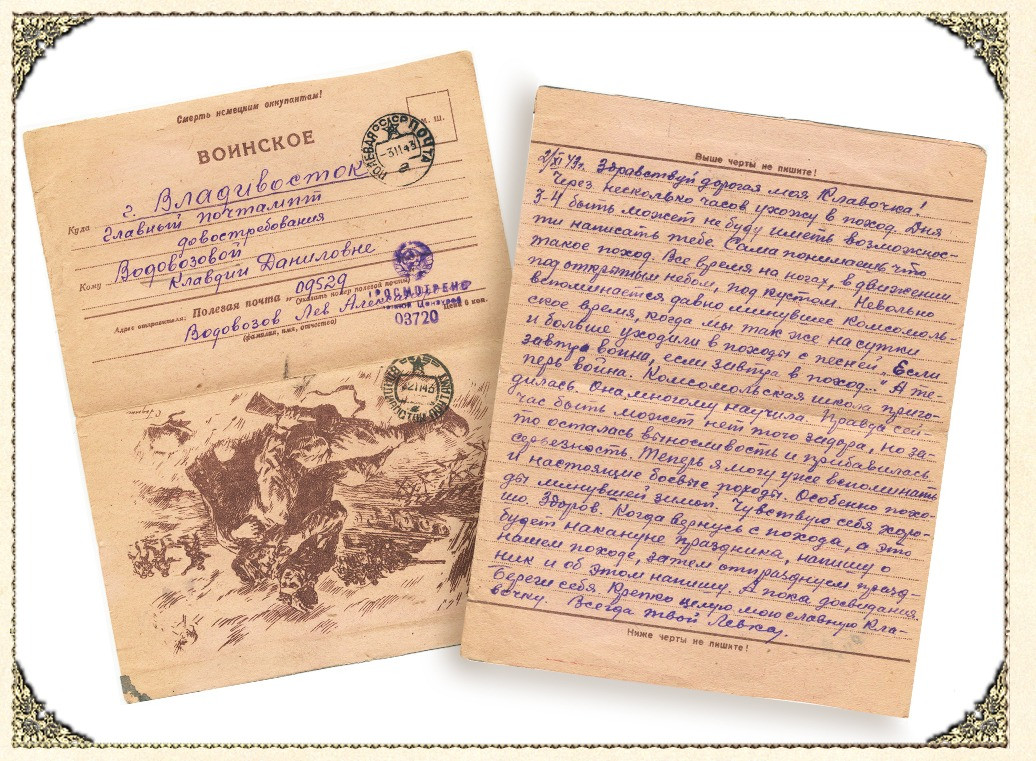 Смерть немецким оккупантам!
ВОИНСКОЕ
М. Ш.
ПОЛЕВАЯ ПОЧТА
СССР
-3 11 43
а
Куда г. Владивосток
Главный почтампт
довостребования
Кому Водовозовой
Клавдии Даниловне
Адрес отправителя: Полевая почта № 09529
(указать номер полевой почты)
Водовозов Лев
(фамилия, имя, отчество)
Цена 6 коп.
ПРОСМОТРЕНО
Военной Цензурой
03720
Выше черты не пишите!
2/XI 43г. Здравствуй дорогая моя Клавочка!
Через несколько часов ухожу в поход. Дня
3-4 быть может не буду иметь возможнос-
ти написать тебе. Сама понимаешь что
такое поход. Все время на ногах, в движении
под открытым небом, под кустом. Невольно
вспоминается давно минувшее Комсомоль-
ское время, когда мы так же на сутки
и больше уходили в походы с песней „Если
завтра война, если завтра в поход..." А те-
перь война. Комсомольская школа приго-
дилась. Она многому научила. Правда сей-
час быть может нет того задора, но за-
то осталась выносливость и прибавилась
серьезность. Теперь я могу уже вспоминать
и настоящие боевые походы. Особенно похо-
ды минувшей зимой. Чувствую себя хоро-
шо. Здоров. Когда вернусь с похода, а это
будет накануне праздника, напишу о
нашем походе, затем отпразднуем празд-
ник и об этом напишу. А пока досвидания.
Береги себя. Крепко целую мою славную Кла-
вочку. Всегда твой Левка.
Ниже черты не пишите!